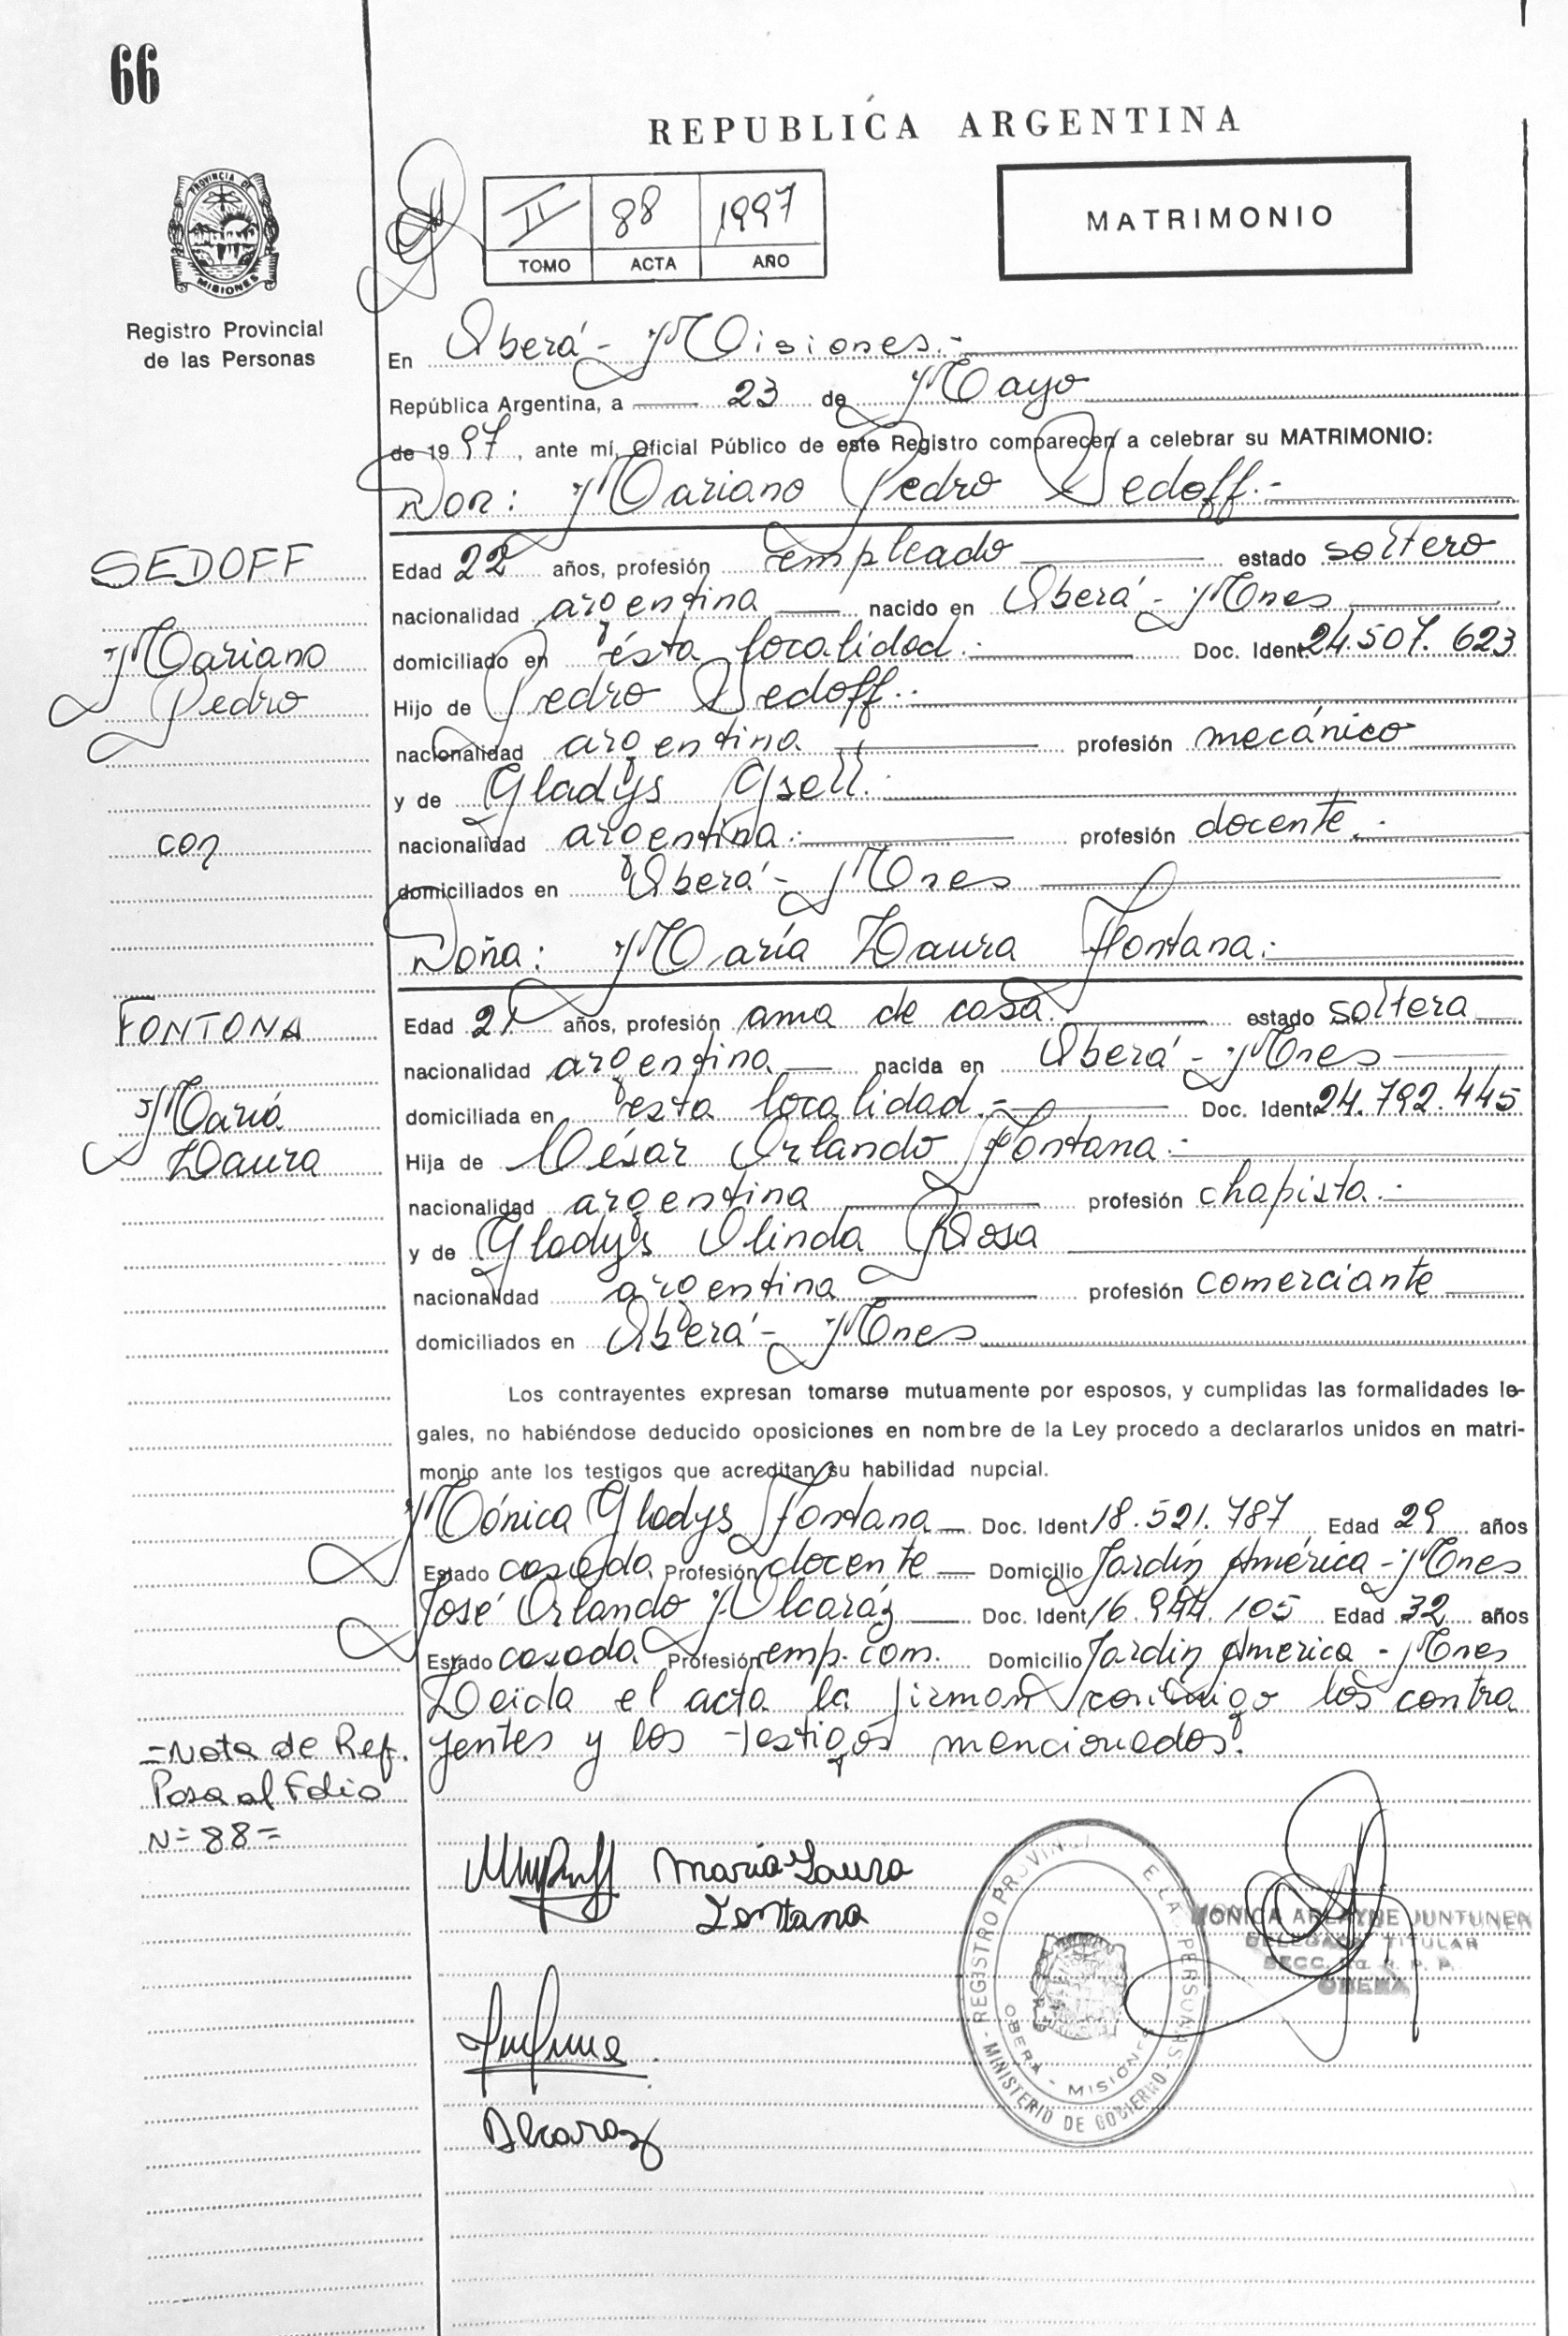 66
REPUBLICA ARGENTINA
PROVINCIA DE
MISIONES
Registro Provincial
de las Personas
II 88 1997
TOMO ACTA AÑO
MATRIMONIO
En Oberá - Misiones.-
República Argentina, a 23 de Mayo
de 1997, ante mí, Oficial Público de este Registro comparecen a celebrar su MATRIMONIO:
Don: Mariano Pedro Sedoff.-
SEDOFF
Mariano
Pedro
con
Edad 22 años, profesión empleado estado soltero
nacionalidad argentina nacido en Oberá - Mnes
domiciliado en ésta localidad.- Doc. Ident. 24.507.623
Hijo de Pedro Sedoff.-
nacionalidad argentina profesión mecánico
y de Gladys Gsell.
nacionalidad argentina.- profesión docente.-
domiciliados en Oberá - Mnes
Doña: María Laura Fontana.-
FONTONA
Maria
Laura
Edad 21 años, profesión ama de casa. estado soltera
nacionalidad argentina nacida en Oberá - Mnes
domiciliada en ésta localidad.- Doc. Ident. 24.792.445
Hija de César Orlando Fontana.-
nacionalidad argentina profesión chapista.-
y de Gladys Olinda Rosa
nacionalidad argentina profesión comerciante
domiciliados en Oberá - Mnes
Los contrayentes expresan tomarse mutuamente por esposos, y cumplidas las formalidades le-
gales, no habiéndose deducido oposiciones en nombre de la Ley procedo a declararlos unidos en matri-
monio ante los testigos que acreditan su habilidad nupcial.
Mónica Gladys Fontana Doc. Ident 18.521.787 Edad 29 años
Estado casada Profesión docente Domicilio Jardín América - Mnes
José Orlando Alcaráz Doc. Ident 16.944.105 Edad 32 años
Estado casado Profesión emp. com. Domicilio Jardin América - Mnes
Leida el acta la firman conmigo los contra
yentes y los testigos mencionados.
=Nota de Ref.
Pasa al Folio
N= 88=
Maria Laura
Fontana
Alcaraz
REGISTRO PROVINCI E LA PERSONAS
MINISTERIO DE GOBIERNO
OBERA - MISIONES
MONICA ARLAYNE JUNTUNEN
DELEGADA TITULAR
SECC. R. P. P.
OBERA